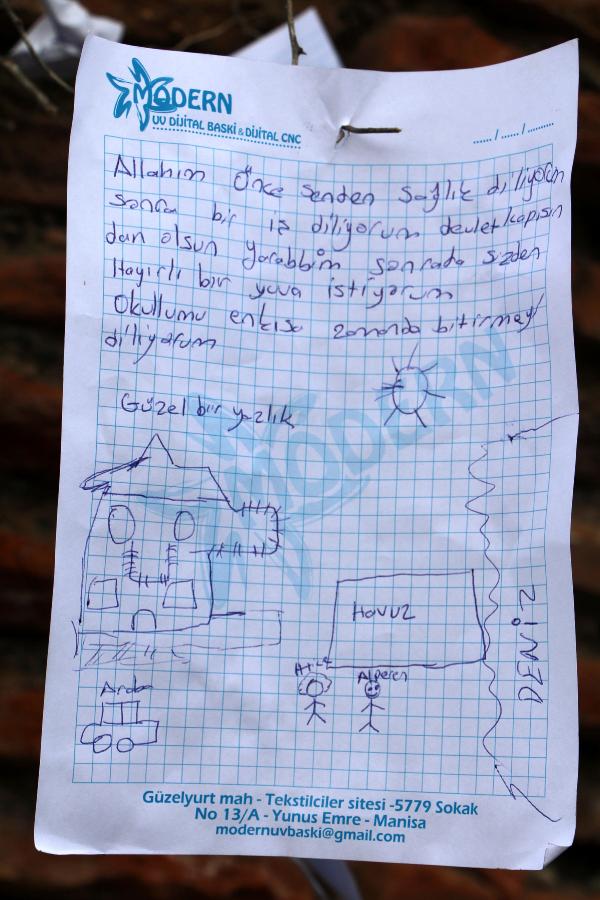 MODERN
UV DİJİTAL BASKI & DİJİTAL CNC
...... / ...... / ..........
Allahım Önce Senden Sağlık diliyorum
sonra bir iş diliyorum devlet kapısın
dan olsun yarabbim sonrada sizden
Hayırlı bir yuva istiyorum
Okullumu enkısa zamanda bitirmeyi
diliyorum
Güzel bir yazlık
MODERN
Havuz
DENİZ
Alperen
Araba
Güzelyurt mah - Tekstilciler sitesi -5779 Sokak
No 13/A - Yunus Emre - Manisa
modernuvbaski@gmail.com